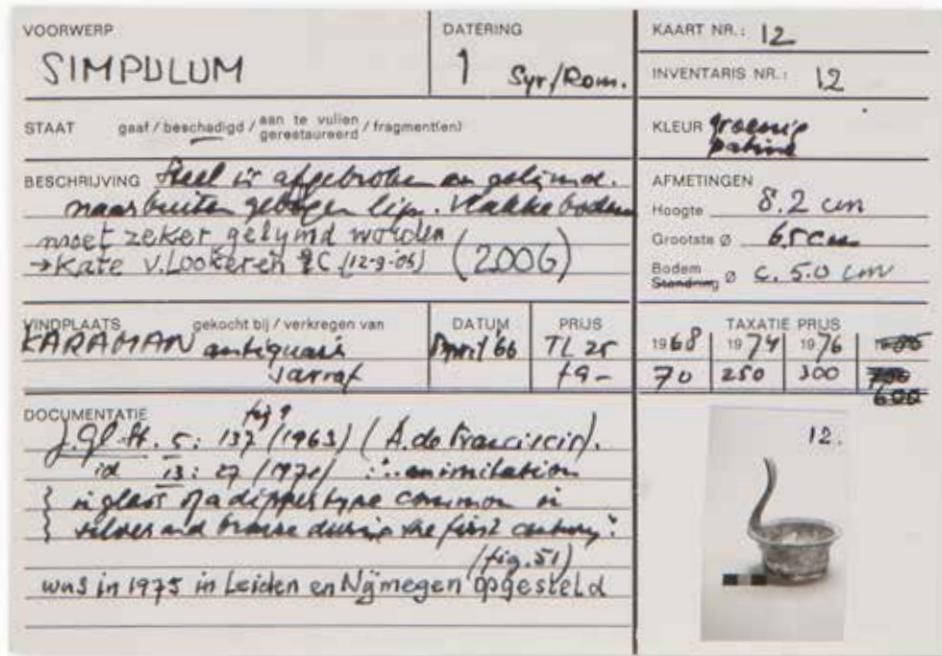 VOORWERP
SIMPULUM
DATERING
1 Syr/Rom.
KAART NR.: 12
INVENTARIS NR.: 12
STAAT gaaf / beschadigd / aan te vullen gerestaureerd / fragment(en)
KLEUR groenig
patine
BESCHRIJVING Steel is afgebroken en gelijmd.
naar buiten gebogen lip. Vlakke bodem
moet zeker gelymd worden
→ Kate v. Lookeren C (12-9-06) (2006)
AFMETINGEN
Hoogte 8.2 cm
Grootste Ø 6.5 cm
Bodem Standring Ø c. 5.0 cm
VINDPLAATS gekocht bij / verkregen van
KARAMAN antiquair
Sarraf
DATUM
April '66
PRIJS
TL 25
f 9-
TAXATIE PRIJS
1968 1974 1976
70 250 300 750
600
DOCUMENTATIE
fig ?
J.Gl.St. 5: 137 (1963) (A. de Franciscis).
id 13: 27 (1971) : "an imitation
in glass of a dipper type common in
silver and bronze during the first century"
(fig. 51)
was in 1975 in Leiden en Nijmegen opgesteld
12.